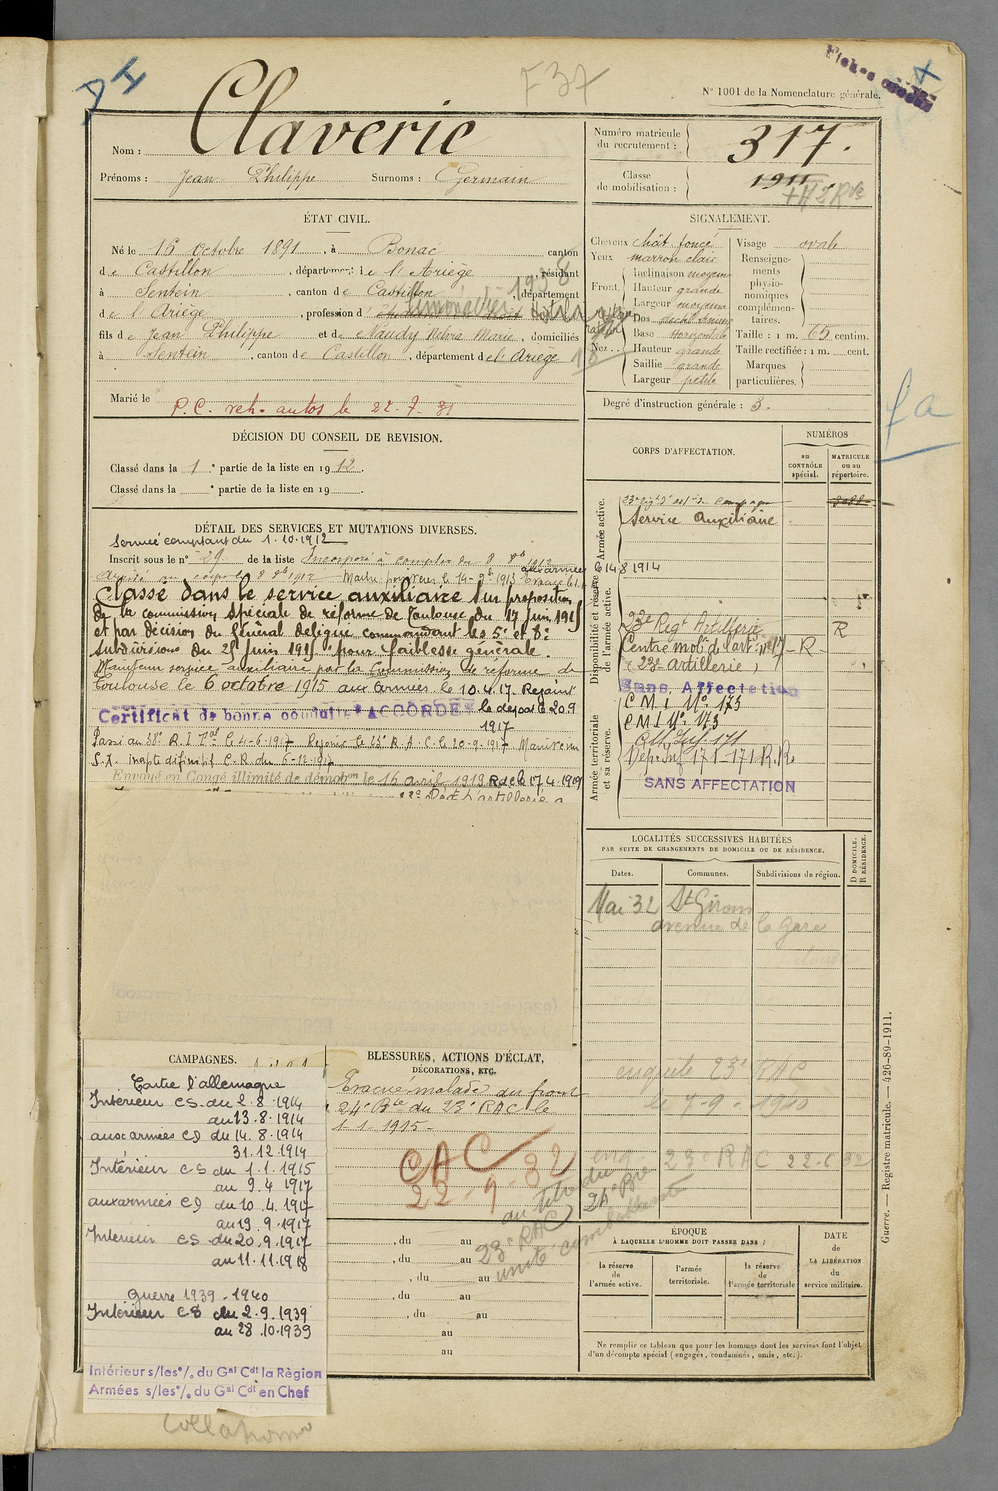 F37
N° 1001 de la Nomenclature générale.
Nom : Claverie
Prénoms : Jean Philippe Surnoms : Germain
Numéro matricule du recrutement : 317.
Classe de mobilisation : 1911
ÉTAT CIVIL.
Né le 16 octobre 1891, à Bonac canton
de Castillon, département de l'Ariège, résidant
à Sentein, canton de Castillon, département
de l'Ariège, profession d'
fils de Jean Philippe et de Claudy Marie, domiciliés
à Sentein, canton de Castillon, département de l'Ariège
Marié le
P.C. veh. autos le 22-7-31
SIGNALEMENT.
Cheveux chât foncé
Yeux marron clair
Front : Inclinaison moyen
Hauteur grande
Largeur moyenne
Nez : Dos
Base horizontale
Hauteur grande
Saillie grande
Largeur petite
Visage ovale
Renseignements physionomiques complémentaires.
Taille : 1 m. 65 centim.
Taille rectifiée : 1 m. cent.
Marques particulières.
Degré d'instruction générale : 3.
DÉCISION DU CONSEIL DE REVISION.
Classé dans la 1e partie de la liste en 1912.
Classé dans la e partie de la liste en 19
CORPS D'AFFECTATION.
NUMÉROS
au CONTRÔLE spécial.
MATRICULE ou au répertoire.
Armée active.
Service auxiliaire
Disponibilité et réserve de l'armée active.
23e Régt Artillerie R
Centre mobe de l'art. n° 17 - R -
(23e artillerie)
Sans Affectation
Armée territoriale et sa réserve.
C M I N° 173
C M I N° 173
Dép. Inf 171 - 171 R.R.
SANS AFFECTATION
DÉTAIL DES SERVICES ET MUTATIONS DIVERSES.
Service comptant du 1.10.1912
Inscrit sous le n° 29 de la liste Incorporé à compter du 8 8bre 1912
Arrivé au corps le 8 8bre 1912 aux armées le 14 8 1914
Classé dans le service auxiliaire sur proposition
de la commission spéciale de réforme de Toulouse du 17 juin 1915
et par décision du Général délégué commandant les 5e et 8e
subdivisions du 25 juin 1915 pour faiblesse générale.
Maintenu service auxiliaire par la Commission de réforme de
Toulouse le 6 octobre 1915 aux Armées le 10.4.17. Rejoint
Certificat de bonne conduite "ACCORDÉ" le dépôt le 20.9
1917
Passé au R.I. le 4-6-1917 Rejoint le 23e R.A.C. le 20-9-1917 Maintenu
S.X. inapte définitif C.R. du 6-12-1917
Envoyé en Congé illimité de démobon le 16 avril 1919 R de 17.4.1919
LOCALITÉS SUCCESSIVES HABITÉES
PAR SUITE DE CHANGEMENTS DE DOMICILE OU DE RÉSIDENCE.
D DOMICILE. R RÉSIDENCE.
Dates. Communes. Subdivisions de région.
Mai 32 St Girons
avenue de la gare
enquête 23e RAC
le 7-9-1910
enq. 23e RAC 22-6 32
CAMPAGNES.
Contre l'allemagne
Intérieur CS. du 2.8.1914
au 13.8.1914
aux armées CD du 14.8.1914
31.12.1914
Intérieur CS du 1.1.1915
au 9.4 1917
aux armées CD du 10.4.1917
au 19.9.1917
Intérieur CS du 20.9.1917
au 11.11.1918
Guerre 1939-1940
Intérieur CS du 2.9.1939
au 28.10.1939
Intérieur s/les °/. du Gal Cdt la Région
Armées s/les °/. du Gal Cdt en Chef
BLESSURES, ACTIONS D'ÉCLAT,
DÉCORATIONS, ETC.
Evacué malade du front
24e Bie du 23e RAC le
1-1-1915-
CAC
22-9-32
au titre du 24e Bie
23e RAC
unité combattante
, du au
, du au
, du au
, du au
, du au
au
au
ÉPOQUE
À LAQUELLE L'HOMME DOIT PASSER DANS :
la réserve de l'armée active.
l'armée territoriale.
la réserve de l'armée territoriale
DATE de LA LIBÉRATION du service militaire.
Ne remplir ce tableau que pour les hommes dont les services font l'objet
d'un décompte spécial (engagés, condamnés, omis, etc.).
Guerre. — Registre matricule. — 426-89-1911.